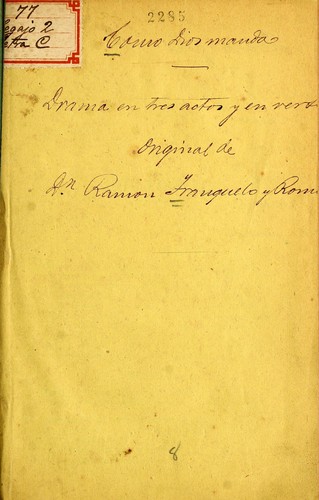 77
Legajo 2
Letra C
2285
Como Dios manda
Drama en tres actos y en vers
Original de
Dn Ramon Franquelo y Rom
8